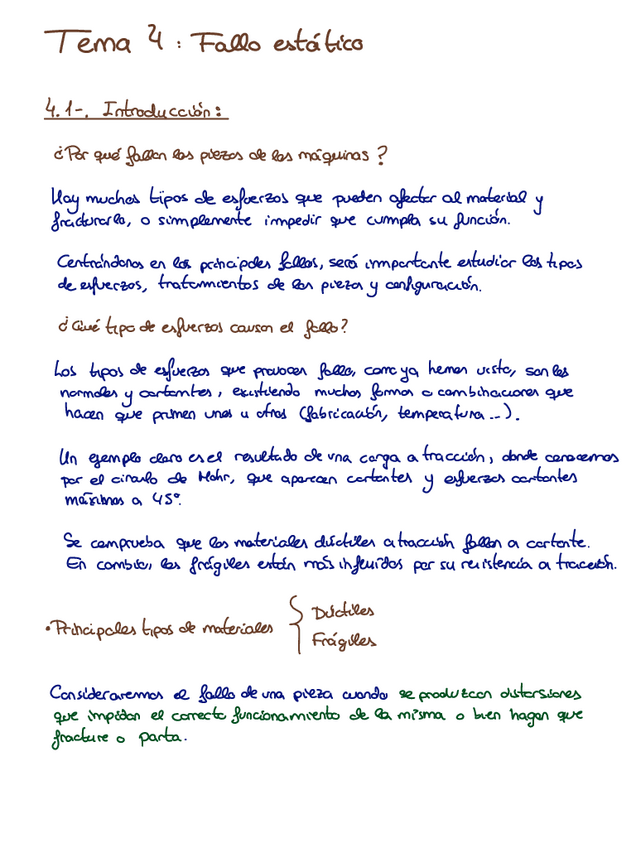 Tema 4: Fallo estático
4.1-. Introducción:
¿Por qué fallan las piezas de las máquinas?
Hay muchos tipos de esfuerzos que pueden afectar al material y
fracturarlo, o simplemente impedir que cumpla su función.
Centrándonos en los principales fallos, será importante estudiar los tipos
de esfuerzos, tratamientos de las piezas y configuración.
¿Qué tipo de esfuerzos causan el fallo?
Los tipos de esfuerzos que provocan fallo, como ya hemos visto, son los
normales y cortantes, existiendo muchas formas o combinaciones que
hacen que primen unos u otros (fabricación, temperatura...).
Un ejemplo claro es el resultado de una carga a tracción, donde conocemos
por el círculo de Mohr, que aparecen cortantes y esfuerzos cortantes
máximos a 45º.
Se comprueba que los materiales dúctiles a tracción fallan a cortante.
En cambio, los frágiles están más influidos por su resistencia a tracción.
•Principales tipos de materiales { Dúctiles
Frágiles
Consideraremos el fallo de una pieza cuando se produzcan distorsiones
que impidan el correcto funcionamiento de la misma o bien hagan que
fracture o parta.